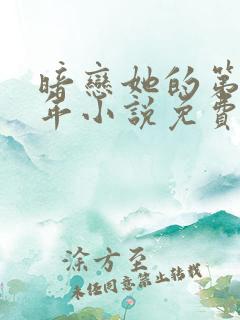 暗戀她的第
年小說免費
涂方至
未經同意禁止轉載